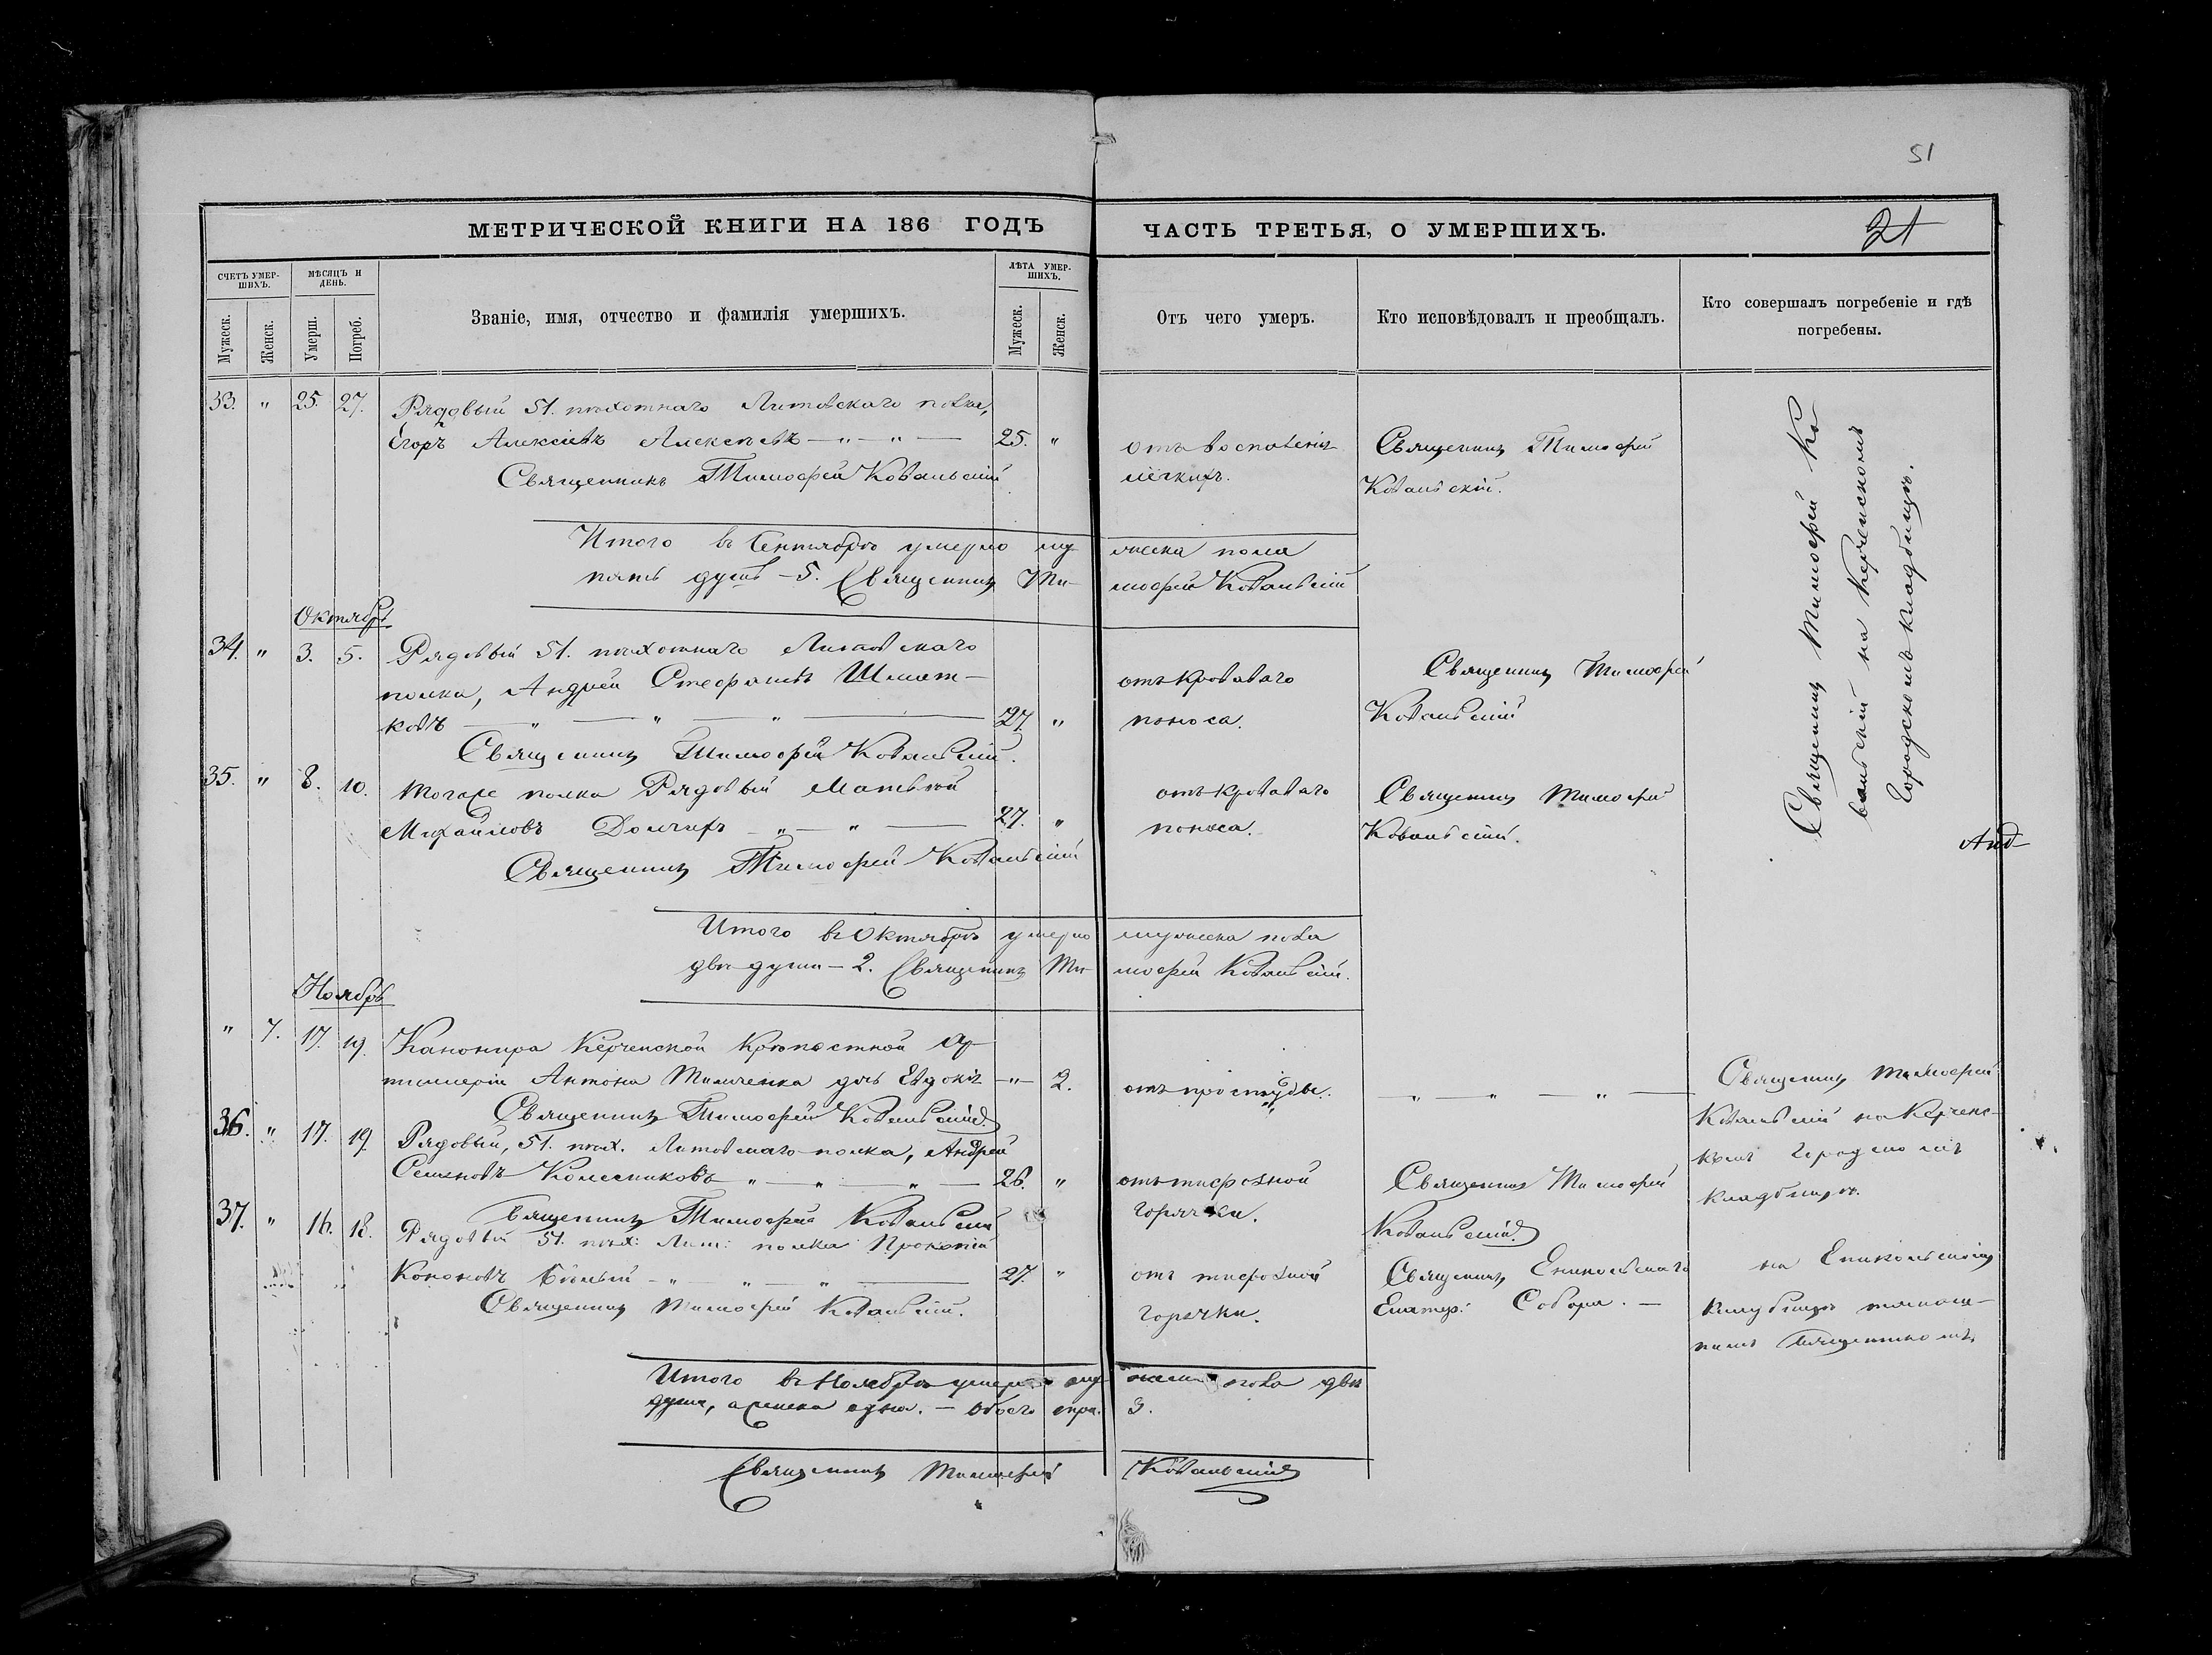 51
МЕТРИЧЕСКОЙ КНИГИ НА 186 ГОДЪ
ЧАСТЬ ТРЕТЬЯ, О УМЕРШИХЪ.
21
СЧЕТЪ УМЕР-
ШИХЪ.
МѢСЯЦЪ И
ДЕНЬ.
Званіе, имя, отчество и фамилія умершихъ.
ЛѢТА УМЕР-
ШИХЪ.
Отъ чего умеръ.
Кто исповѣдовалъ и преобщалъ.
Кто совершалъ погребеніе и гдѣ
погребены.
Мужеск.
Женск.
Умерш.
Погреб.
Мужеск.
Женск.
33. " 25. 27. Рядовый 51. пѣхотнаго Литовскаго полка,
Егоръ Алексіевъ Алексѣевъ — " — " — 25. "
Священникъ Тимофей Ковальскій
отъ воспаленія
легкихъ.
Священникъ Тимофей
Ковальскій.
Итого въ Сентябрѣ умерло му- жеска пола
пять душъ – 5. Священникъ Ти- мофей Ковальскій
Священникъ Тимофей Ко-
вальскій на Керченскомъ
Городскомъ кладбищѣ.
Октябрь
34. " 3. 5. Рядовый 51. пѣхотнаго Литовскаго
полка, Андрей Стефановъ
ковъ — " — " — " — 27. "
Священникъ Тимофей Ковальскій.
отъ кроваваго
поноса.
Священникъ Тимофей
Ковальскій
35. " 8. 10. Тогоже полка Рядовый Матвѣй
Михайловъ — " — " — 27. "
Священникъ Тимофей Ковальскій
отъ кроваваго
поноса.
Священникъ Тимофей
Ковальскій.
Итого въ Октябрѣ умерло мужеска пола
двѣ души – 2. Священникъ Ти- мофей Ковальскій.
Ноябрь
" 7. 17. 19. Канонира Керченской Крѣпостной Ар-
тиллеріи Антона дочь Евдокія — " — 2.
Священникъ Тимофей Ковальскій
отъ простуды.
— " — " — " —
Священникъ Тимофей
Ковальскій на Керченс-
комъ Городскомъ
кладбищѣ.
36. " 17. 19. Рядовый, 51. пѣх. Литовскаго полка, Андрей
Семеновъ Колесниковъ " — " — " — 26. "
Священникъ Тимофей Ковальскій
отъ тифозной
горячки.
Священникъ Тимофей
Ковальскій
37. " 16. 18. Рядовый 51. пѣх: Лит: полка Прокопій
Кононовъ Бѣлый — " " — " — 27. "
Священникъ Тимофей Ковальскій.
отъ тифозной
горячки.
Священникъ Еникольскаго
Собора. —
на Еникольскомъ
кладбищѣ
Священникомъ
Итого въ Ноябрѣ умерло му- жеска пола двѣ
души, а женска одна. – Обоего 3.
Священникъ Тимофей Ковальскій